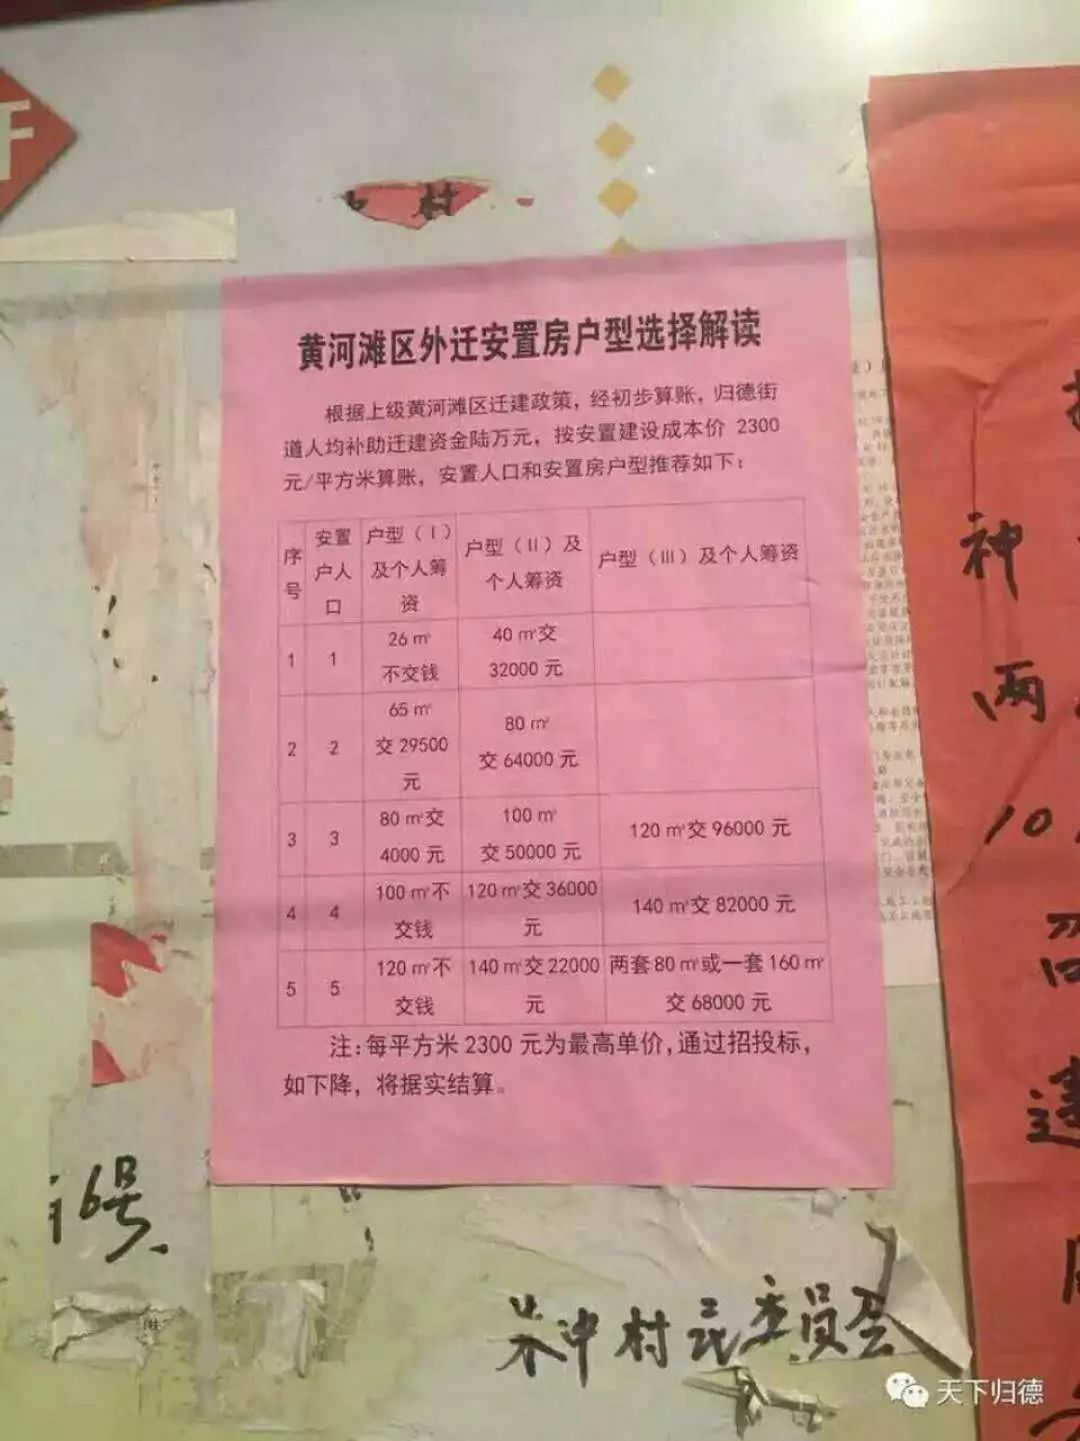 村
黄河滩区外迁安置房户型选择解读
根据上级黄河滩区迁建政策，经初步算账，归德街
道人均补助迁建资金陆万元，按安置建设成本价 2300
元/平方米算账，安置人口和安置房户型推荐如下：
序号 安置户人口 户型（Ⅰ）及个人筹资 户型（Ⅱ）及个人筹资 户型（Ⅲ）及个人筹资
1 1 26㎡不交钱 40㎡交32000元
2 2 65㎡交29500元 80㎡交64000元
3 3 80㎡交4000元 100㎡交50000元 120㎡交96000元
4 4 100㎡不交钱 120㎡交36000元 140㎡交82000元
5 5 120㎡不交钱 140㎡交22000元 两套80㎡或一套160㎡交68000元
注：每平方米2300元为最高单价，通过招投标，
如下降，将据实结算。
神
两
10
16号
中村民委员会
天下归德